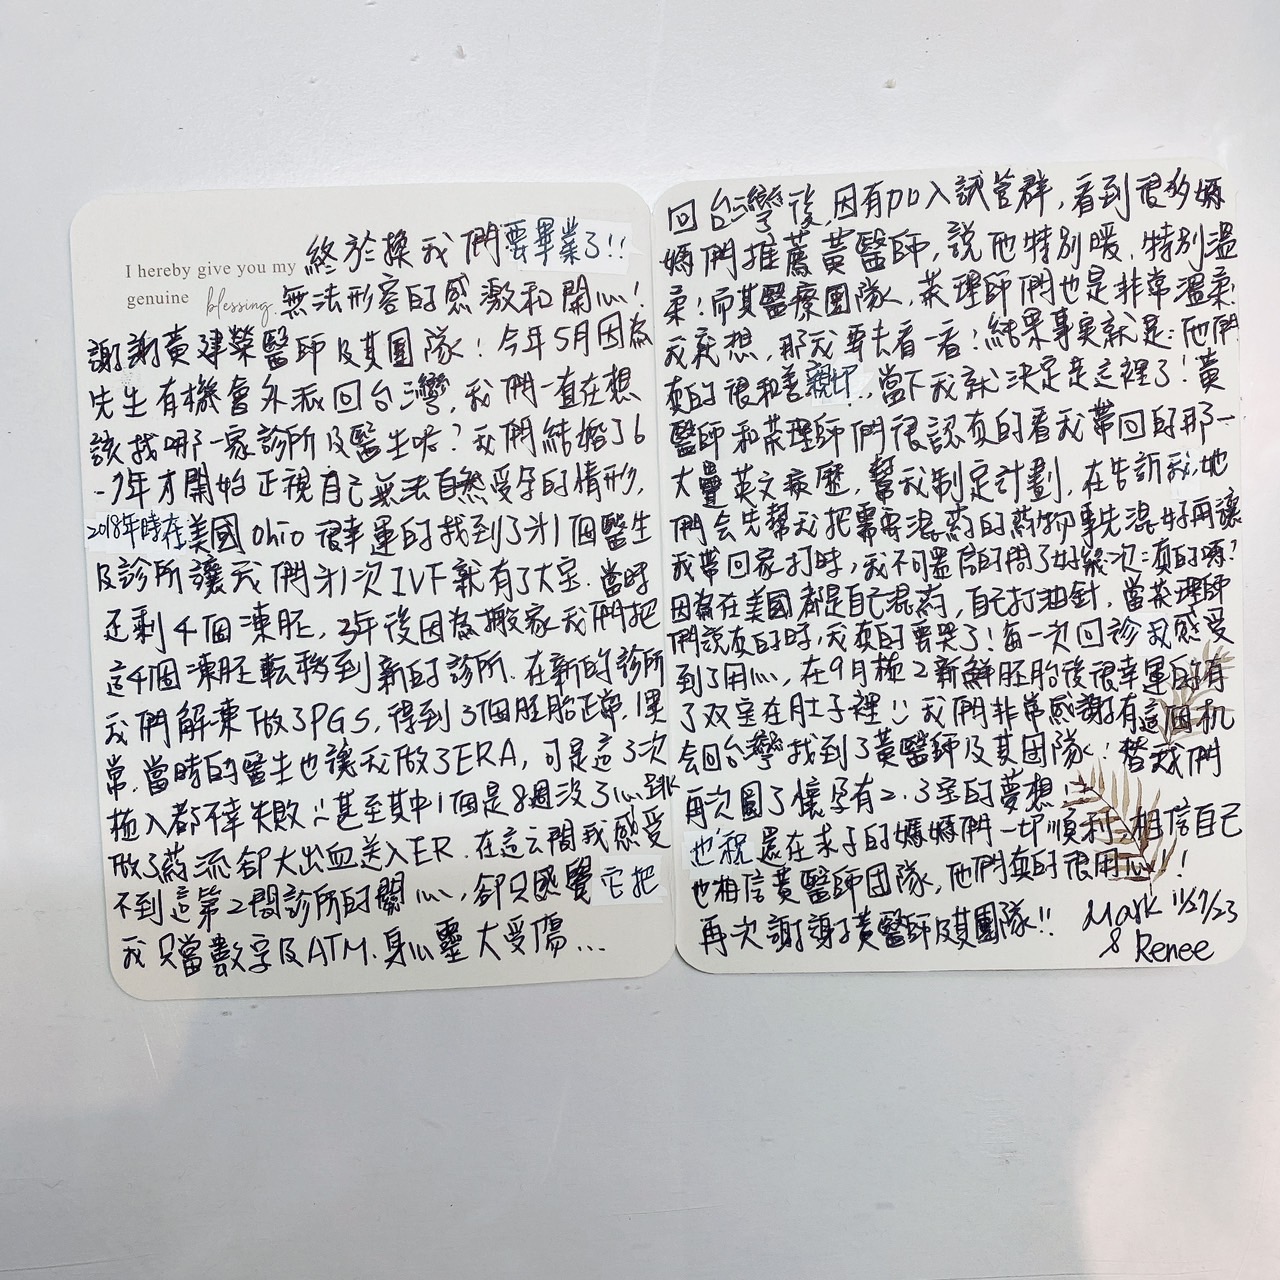 I hereby give you my
genuine blessing.
終於換我們要畢業了!!
無法形容的感激和開心!
謝謝黃建榮醫師及其團隊!今年5月因為
先生有機會外派回台灣,我們一直在想
該找哪一家診所及醫生呢?我們結婚了6
-7年才開始正視自己無法自然受孕的情形,
2018年時在美國Ohio很幸運的找到了为1個醫生
及診所讓我們为1次IVF就有了大宝.當時
还剩4個凍胚,3年後因為搬家我們把
這4個凍胚転移到新的診所.在新的診所
我們解凍做了PGS,得到3個胚胎正常,1異
常.當時的醫生也讓我做了ERA,可是這3次
植入都不幸失敗!!甚至其中1個是8週沒了心跳
做了药流卻大出血送入ER.在這之間我感受
不到這第2間診所的關心,卻只感覺它把
我只當數字及ATM.身心靈大受傷...
回台灣後,因有加入試管群,看到很多媽
媽們推薦黃醫師,說他特別暖,特別溫
柔!而其醫療團隊,諮理師們也是非常溫柔!
我就想,那我要去看一看!結果事实就是:他們
真的很和善親切,當下我就決定是這裡了!黃
醫師和諮理師們很認真的看我帶回的那一
大疊英文病歷,幫我制定計劃,在告訴我,她
們会先幫我把需要混药的药物事先混好再讓
我帶回家打時,我不可置信的問了好幾次:真的嗎?
因為在美國都是自己混药,自己打油針,當諮理師
們說真的時,我真的要哭了!每一次回診我感受
到了用心,在9月植2新鮮胚胎後很幸運的有
了双宝在肚子裡!!我們非常感謝有這個机
会回台灣找到了黃醫師及其团隊!替我們
再次圓了懷孕有2.3宝的夢想!
也祝還在求子的媽媽們一切順利,相信自己
也相信黃醫師团隊,他們真的很用心!
再次謝謝黃醫師及其團隊!!
Mark 11/27/23
& Renee